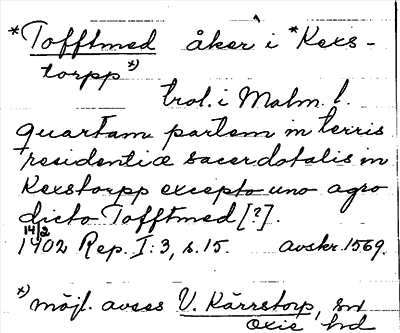 *Tofftmed åker i *Kexs-
torpp *)
trol. i Malm. l.
quartam partem in terris
residentiæ sacerdotalis in
Kexstorpp excepto uno agro
dicto Tofftmed [?].
14/2
1402 Rep. I: 3, s. 15. avskr. 1569.
*) möjl. avses V. Kärrstorp, sn
Oxie hd